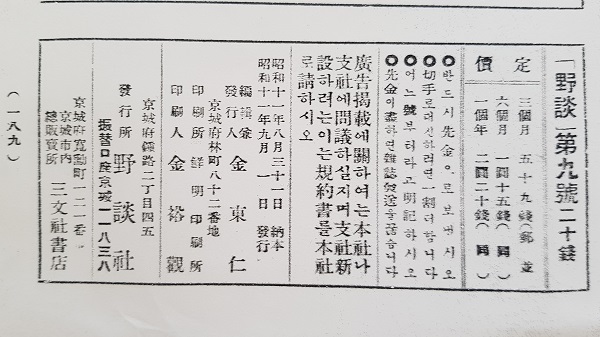 「野談」第九號 二十錢
定價
三個月 五十九錢(郵並)
六個月 一圓十五錢(同)
一個年 二圓二十錢(同)
●반드시先金으로보내시오
●切手로대신하려면一割더합니다
●어느號부터라고明記하시오
●先金이盡하면雜誌發送을끊습니다
廣告揭載에關하여는本社나
支社에問議하실지며支社新
設하려는이는規約書를本社
로請하시오
昭和十一年八月三十一日 納本
昭和十一年九月 一日 發行
編輯兼
發行人 金東仁
京城府林町八十二番地
印刷所 鮮明印刷所
印刷人 金裕觀
京城府鍾路二丁目四五
發行所 野談社
振替口座京城一一八三八
京城府寬勳町一二一番
京城市內
總販賣所 三文社書店
(一八九)